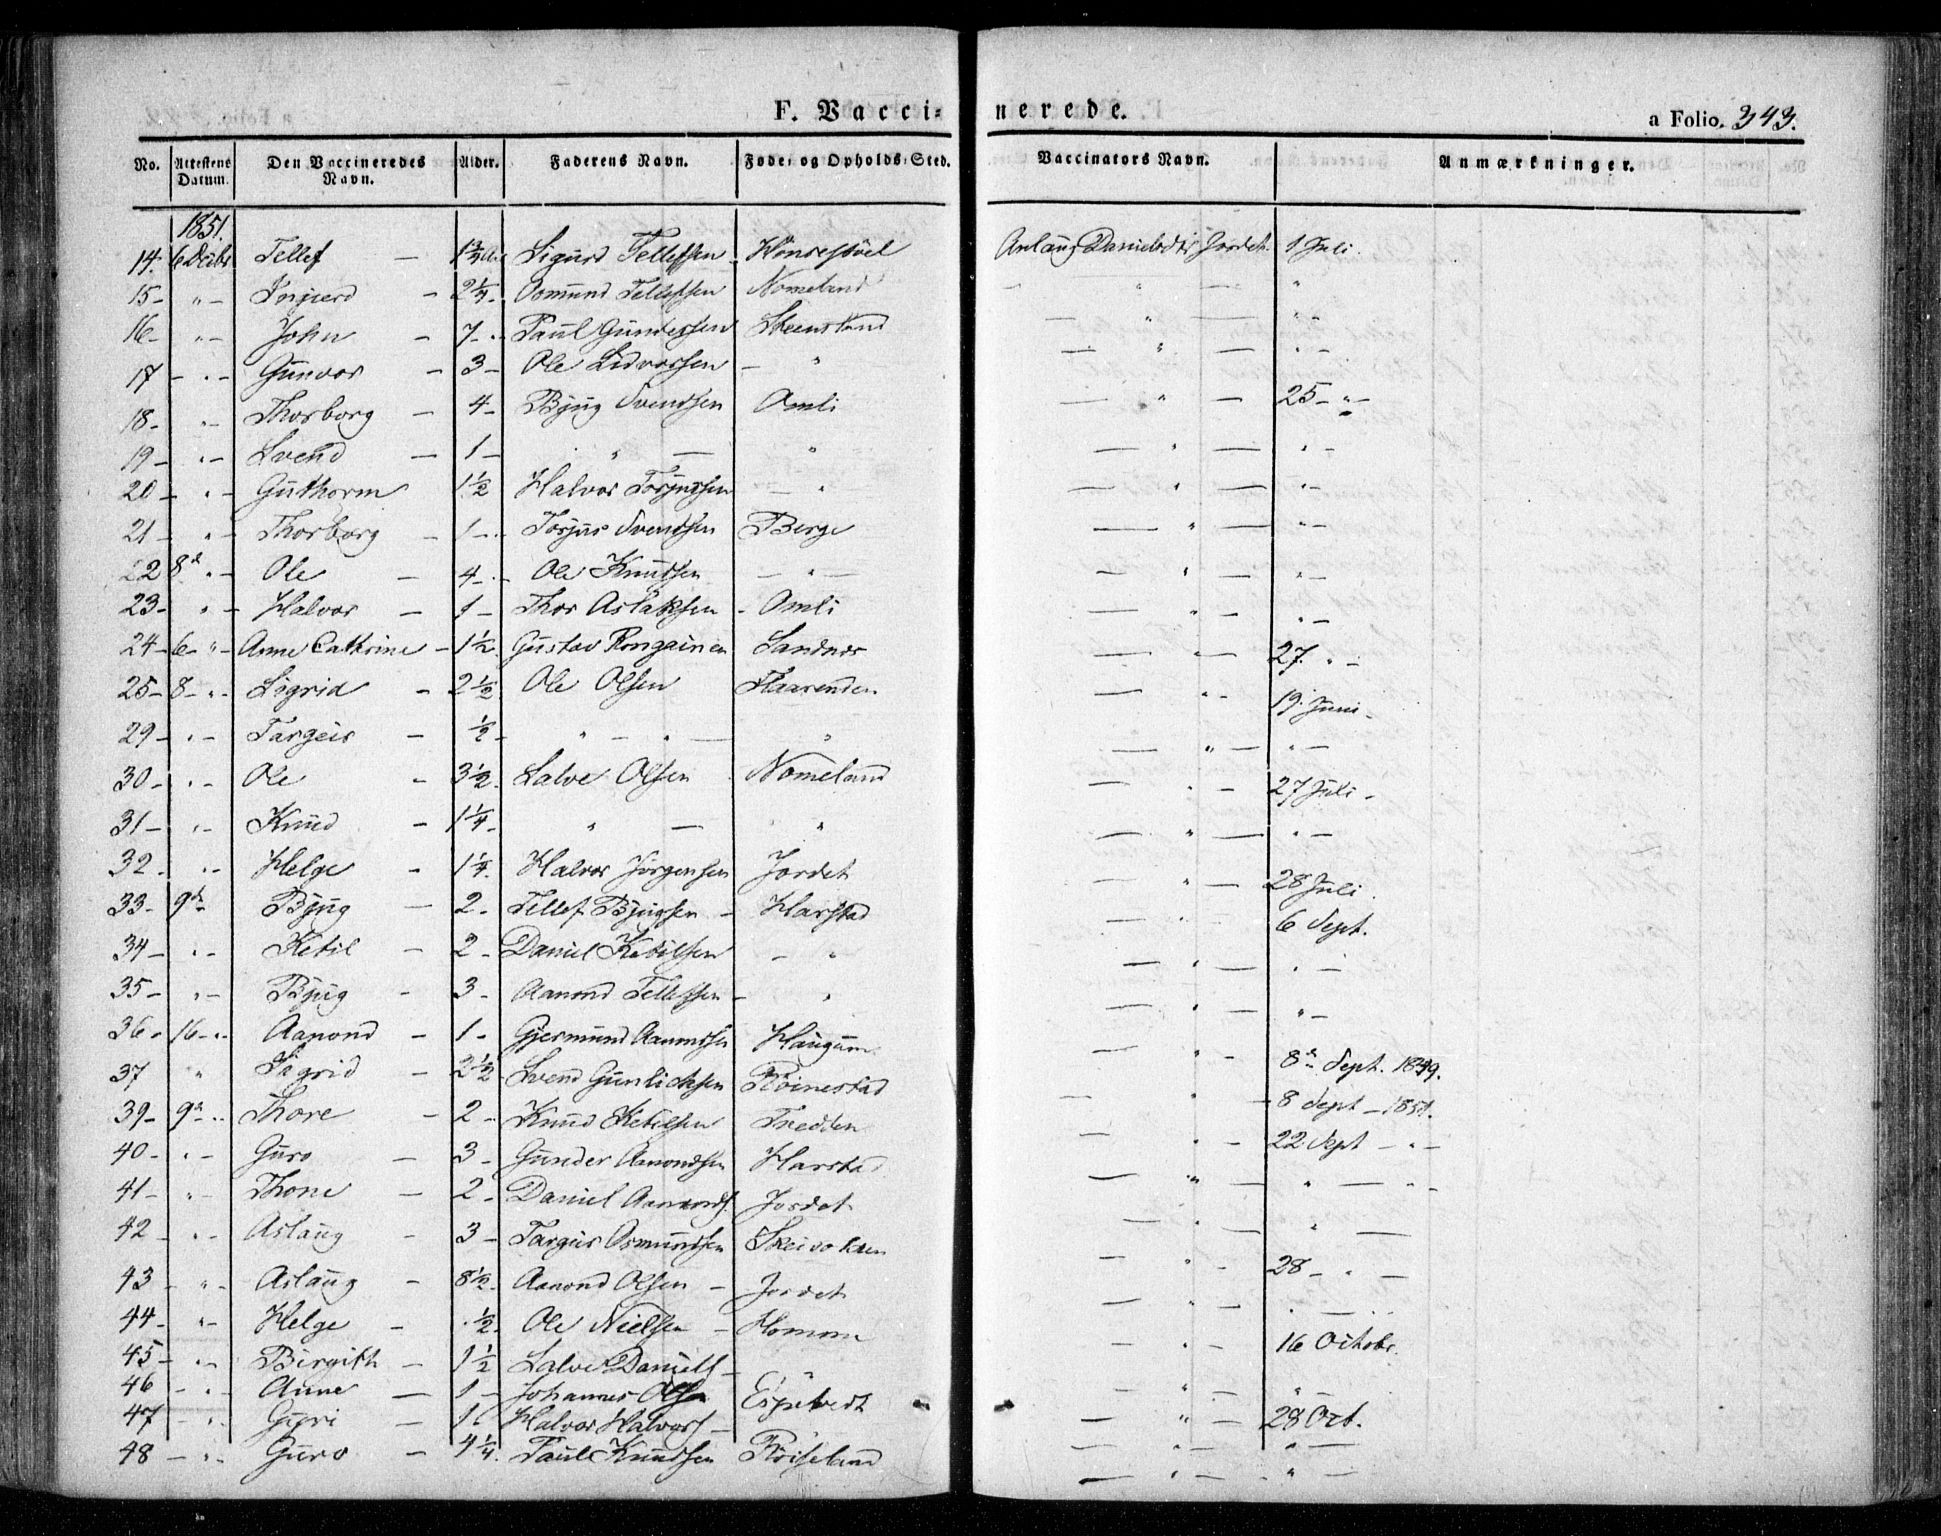 F. Vacci- nerede. a Folio. 343.
No. Attestens Datum. Den Vaccineredes Navn. Alder. Faderens Navn. Føde- og Opholds-Sted. Vaccinators Navn. Anmærkninger.
1851.
14. 6 Decbr Tellef — Sigurd Tellefsen Danielsdtr Jordet. 1 Juli.
15 - " - — 2 1/4 - Osmund Tellefsen Nomeland — " — "
16 - " - John — 7 - Paul Gundersen — " — " -
17 - " - Gunvor — 3 - Ole — " — " — " -
18 - " - Thorborg — 4 - Bjug Svendsen Omli — " — 25 - " -
19 - " - Svend — 1 - " — " — " — " -
20 - " - Guthorm 1 1/2 Halvor Torjussen — " — " — " -
21 - " - Thorborg — 1 - Torjus Svendsen Berge — " — " -
22 8de " - Ole — 4 - Ole Knudsen — " — — " — " -
23 - " - Halvor — 1 - Thor Aslaksen - Omli — " — " -
24 - 6 - " - Anne Cathrine - 1 1/2 Gustav Sandnes — " — 27. " -
25 - 8 - " - Sigrid - 2 1/2 Ole Olsen — " - 19 Juni -
29 - " - Targeir - 1/2 - " — " — " — " — " -
30 - " - Ole - 3 1/2 Salve Olsen Nomeland — " - 27 Juli -
31 - " - Knud - 1 1/4 - " — " — " — " -
32. " - Helge - 1 1/4. Halvor Jørgensen Jordet — " — 28 Juli.
33 - 9de Bjug — 2 - Tellef Bjugsen - Harstad — " - 6 Sept.
34 - " - Ketil — 2 - Daniel Ketilsen - " — " — " -
35 - " - Bjug - 3 - Aanond Tellefsen - " — " — " -
36 - 16 - " Aanond - 1 - Gjermund Aanondsen Haugum — " - 8de Sept. 1849.
37 " Sigrid - 2 1/2 Svend — " - 8 Sept - 1851.
39 - 9de " Thore - 2 - Knud Ketilsen Tredden — " - 22 Sept - " -
40 - " - Guro — 3 - Gunder Aanondsen Harstad — " — " — " -
41 - " - Thone — 2 - Daniel Aanonds. Jordet — " - " —
42 - " - Aslaug - 3 - Targeir Osmundsen — " - 28 - " —
43 - " - Aslaug - 8 1/2 - Aanond Olsen - Jordet — " - " —
44 - " - Helge - 1/2. Ole Nielsen - Homme — " - 16 Octobr.
45 - " - Birgith — 1 1/2 Salve Daniels - " — " - "
46 - " - Anne — 1 - Johannes Olsen — " — 28 Oct.
47 - " - Gyri — 1 Halvor Halvors - — " — " —
48 - " - Guro - 4 1/4. Paul Knudsen Røiseland — " — " —